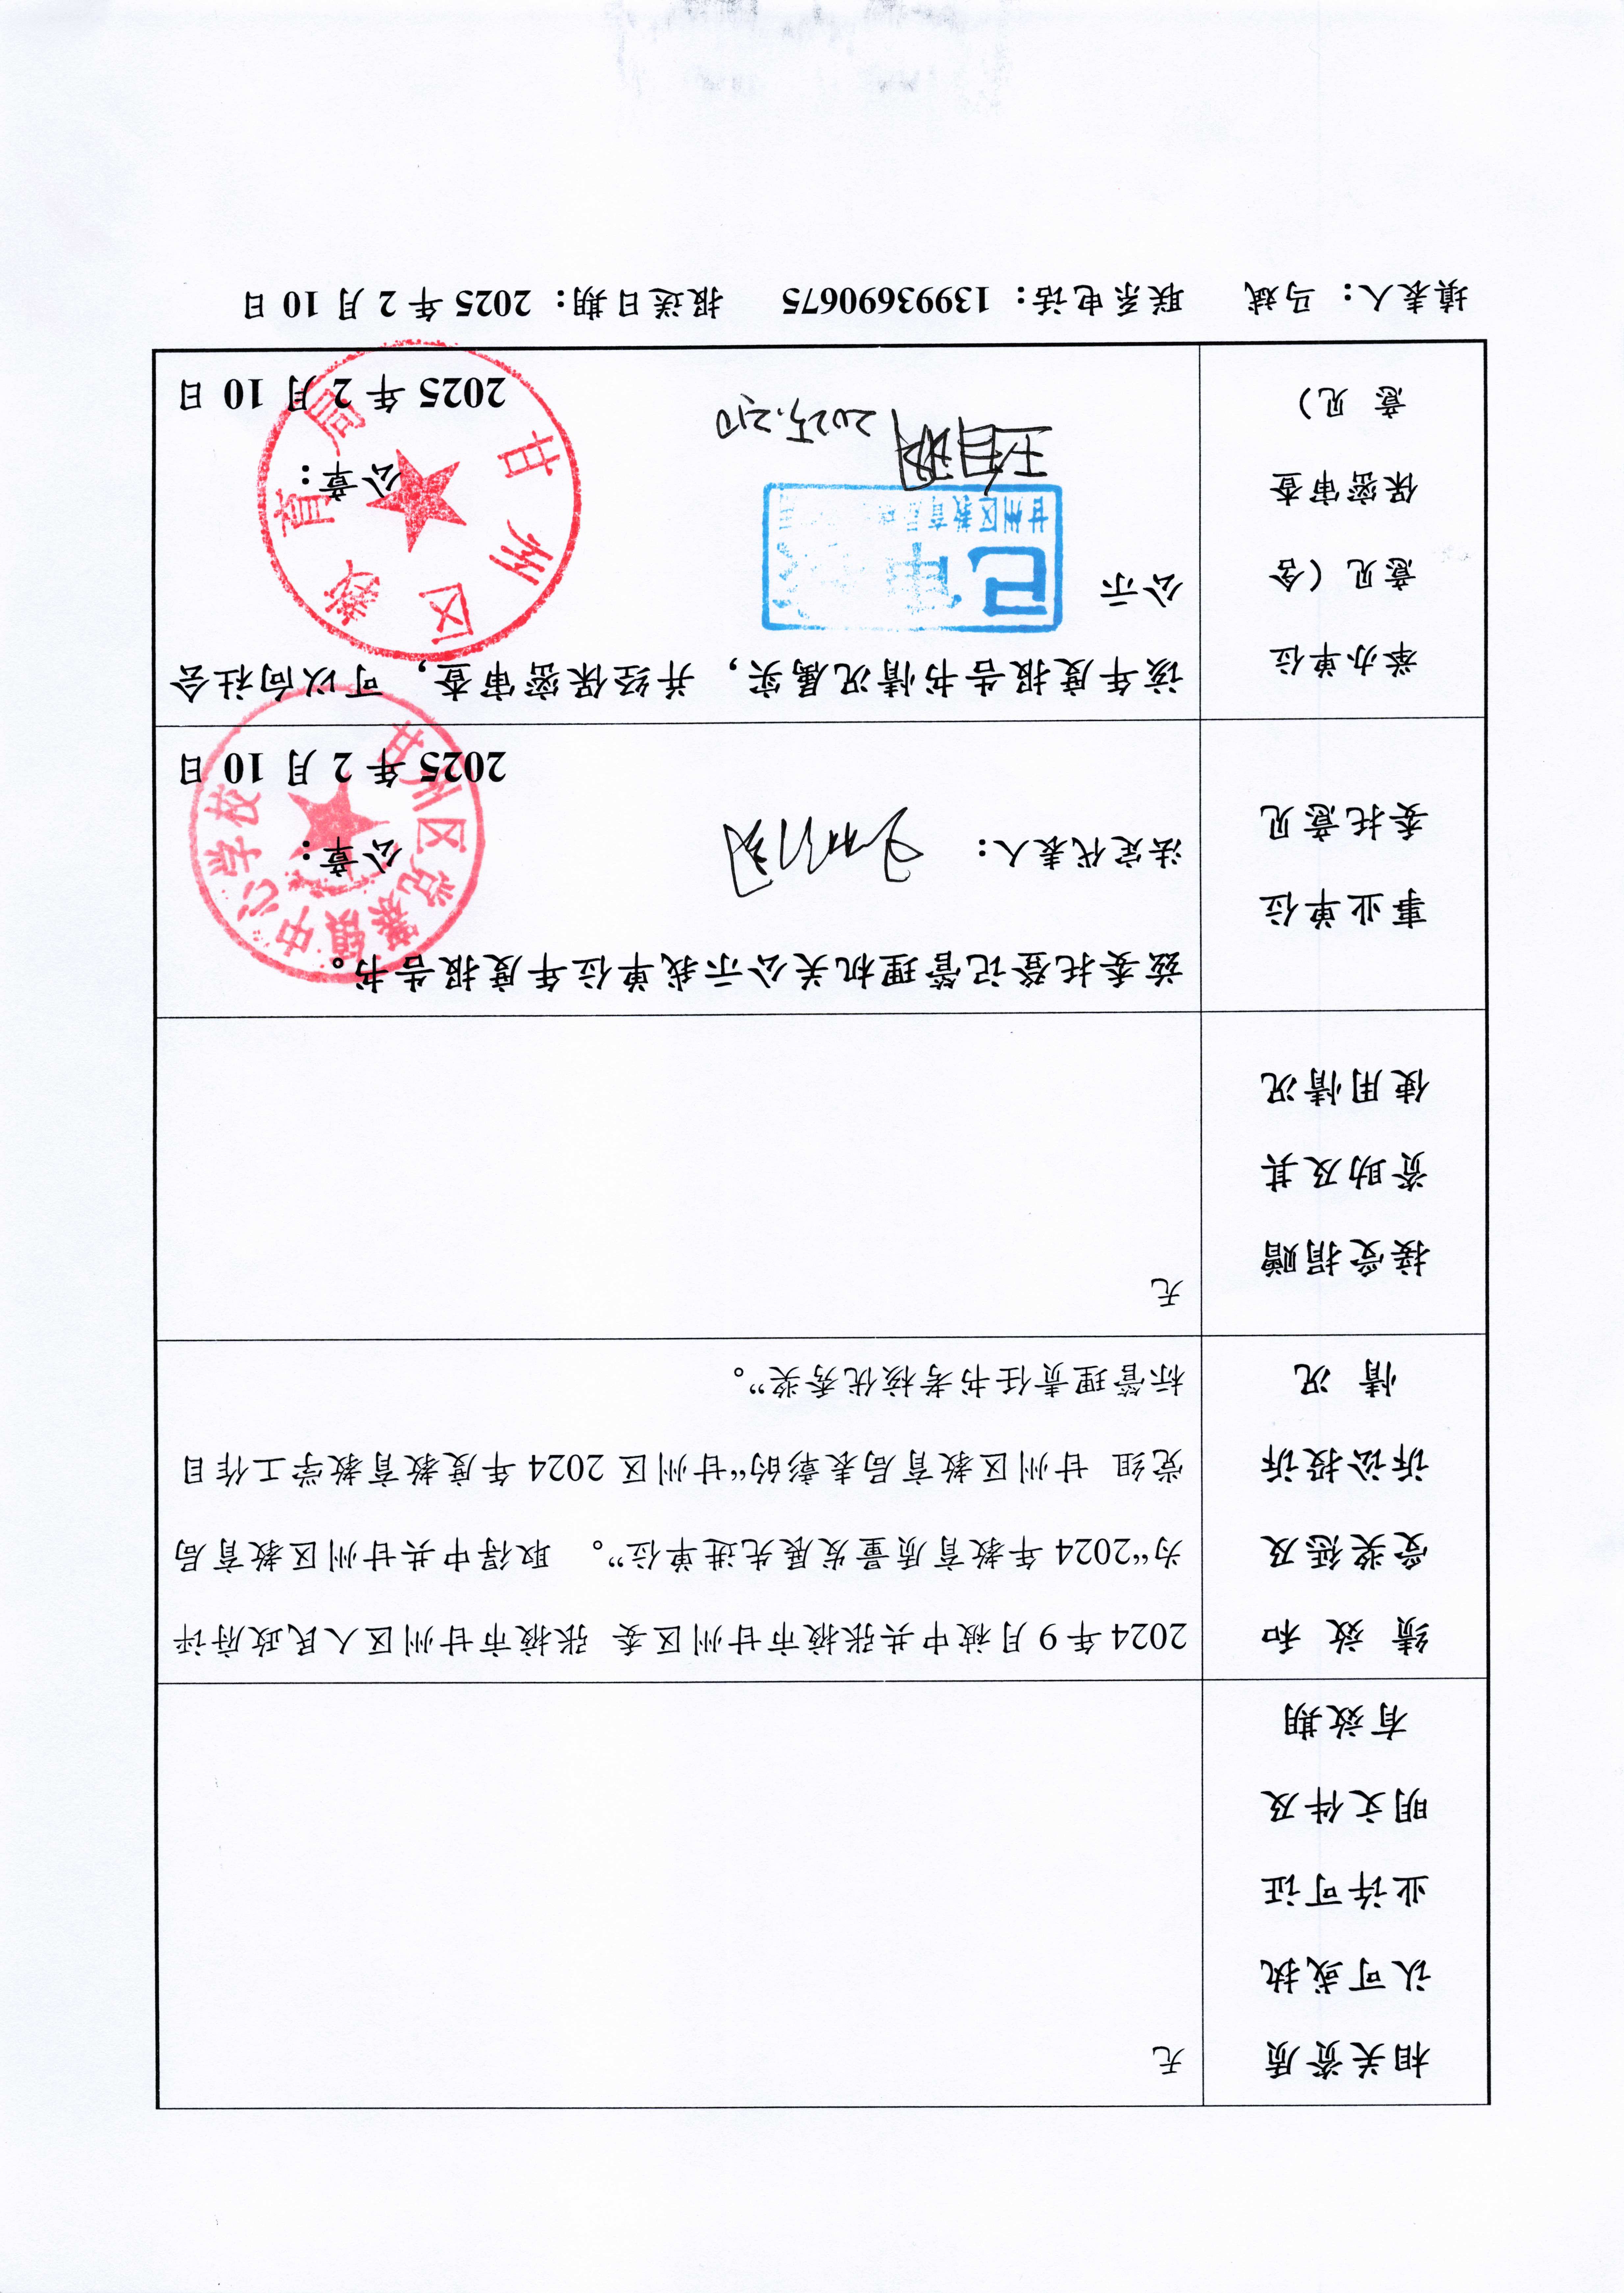 相关资质
认可或执
业许可证
明文件及
有效期
无
绩 效 和
受奖惩及
诉讼投诉
情 况
2024年9月被中共张掖市甘州区委 张掖市甘州区人民政府评
为“2024年教育质量发展先进单位”。 取得中共甘州区教育局
党组 甘州区教育局表彰的“甘州区2024年度教育教学工作目
标管理责任书考核优秀奖”。
接受捐赠
资助及其
使用情况
无
事业单位
委托意见
兹委托登记管理机关公示我单位年度报告书。
法定代表人：
公章：
2025年2月10日
甘州区党寨镇中心学校
举办单位
意见（含
保密审查
意 见）
该年度报告书情况属实，并经保密审查，可以向社会
公示
已审
甘州区教育局
2025.2.10
公章：
2025年2月10日
甘州区教育局
填表人：马斌 联系电话：13993690675 报送日期：2025年2月10日